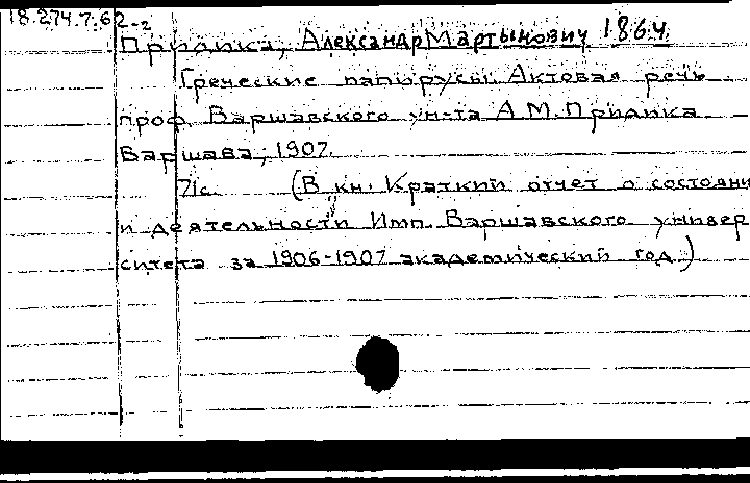 18.274.7.62-2
Придика, Александр Мартынович 1864
Греческие папирусы. Актовая речь
проф. Варшавского ун-та А.М. Придика
Варшава, 1907.
71с. (В кн. Краткий отчет о состояни
и деятельности Имп. Варшавского универ
ситета за 1906-1907 академический год)